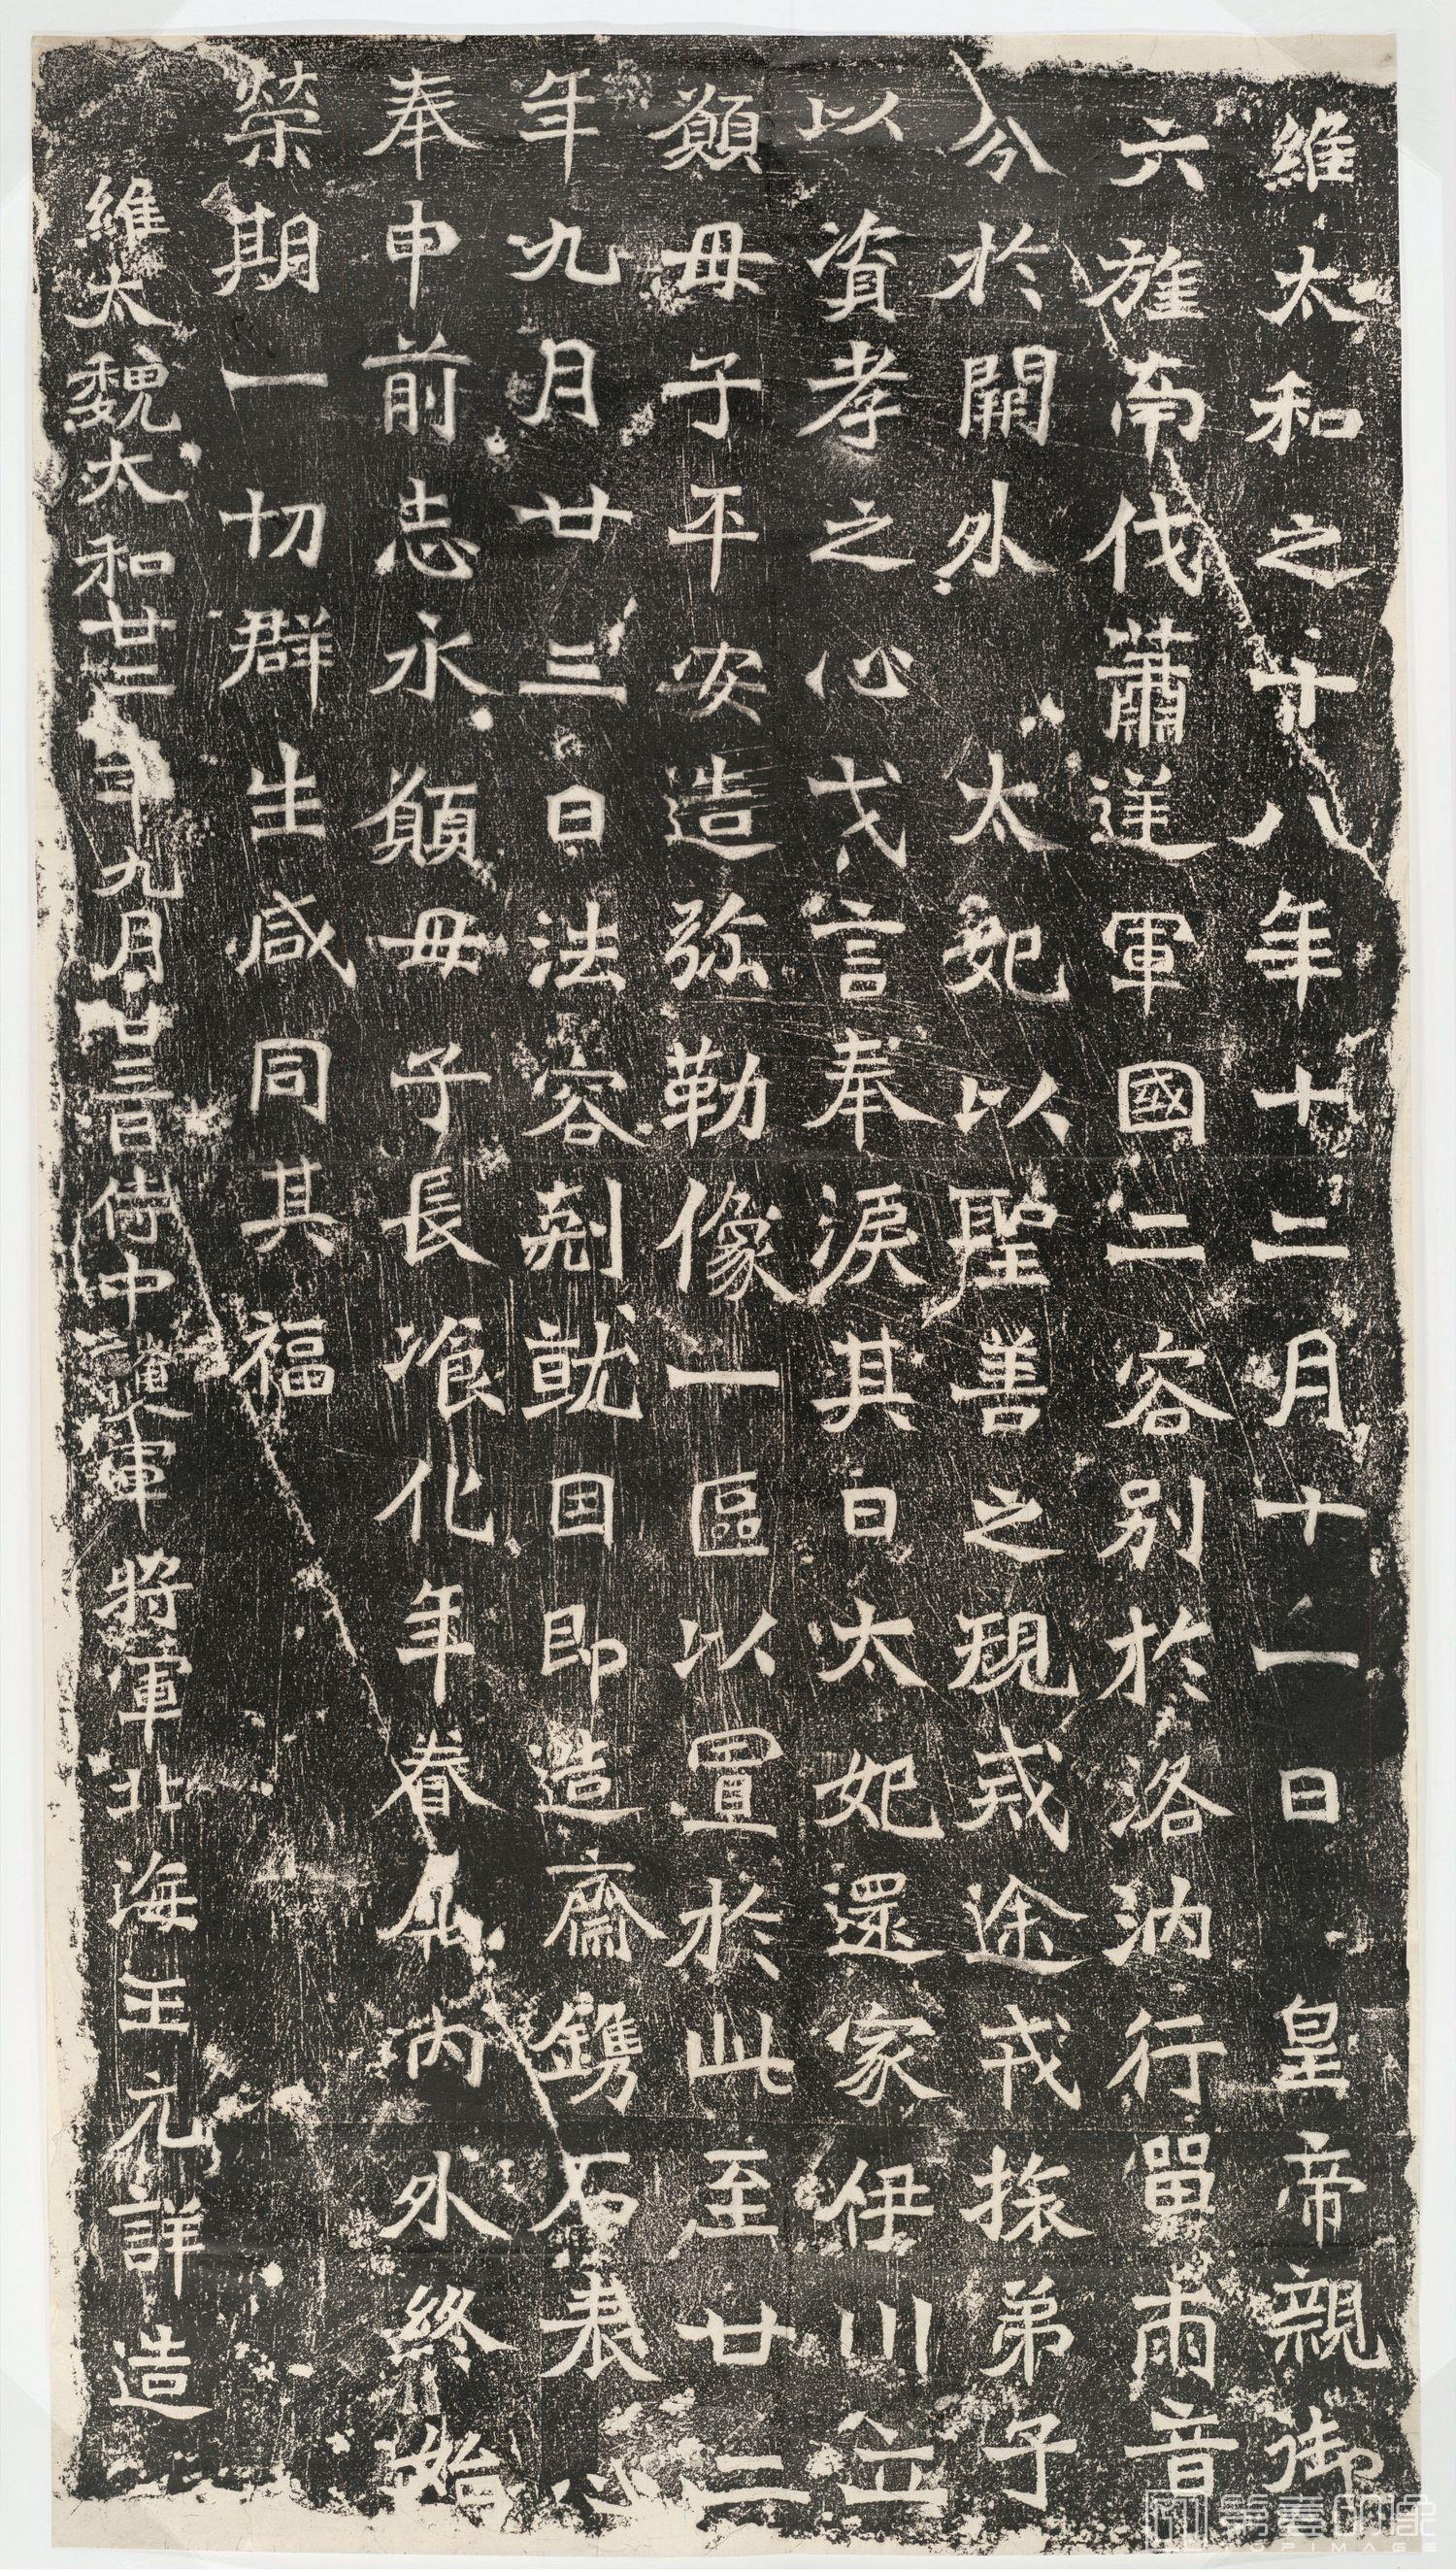 維太和之十八年十二月十一日皇帝親御
六旌南伐蕭逆軍國二容別於洛汭行留兩音
分於闕外太妃以聖善之規戒途戎旅弟子
以資孝之心戈言奉淚其日太妃還家伊川立
願母子平安造弥勒像一區以置於此至廿二
年九月廿三日法容剋就因即造齋鐫石表心
奉申前志永願母子長瓫化年眷屬內外終始
榮期一切群生咸同其福
維太魏太和廿二年九月廿三日侍中護軍將軍北海王元詳造